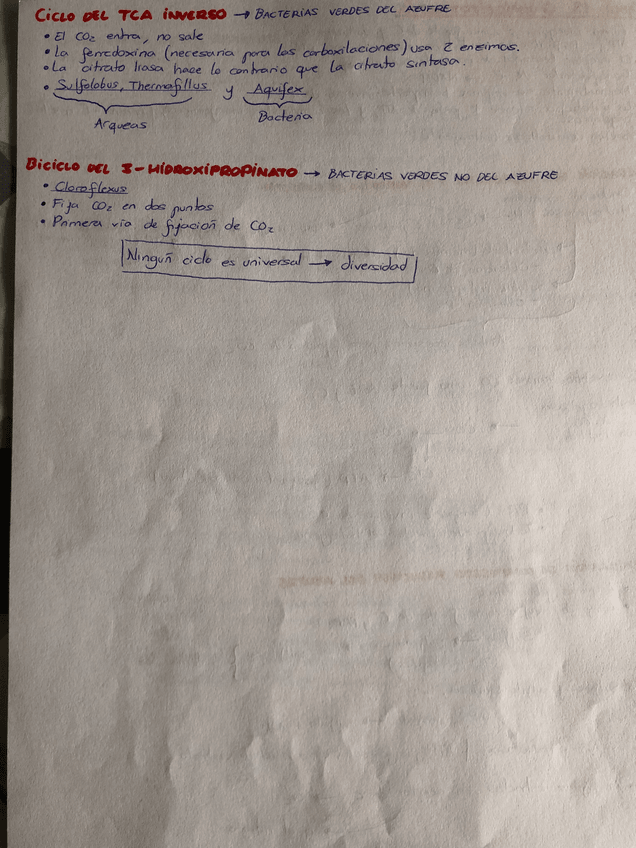 CICLO DEL TCA INVERSO → BACTERIAS VERDES DEL AZUFRE
• El CO₂ entra, no sale
• La ferredoxina (necesaria para las carboxilaciones) usa 2 enzimas.
• La citrato liasa hace lo contrario que la citrato sintasa.
• Sulfolobus, Thermofillus y Aquifex
Arqueas Bacteria
BICICLO DEL 3-HIDROXIPROPINATO → BACTERIAS VERDES NO DEL AZUFRE
• Cloroflexus
• Fija CO₂ en dos puntos
• Primera vía de fijación de CO₂
Ningún ciclo es universal → diversidad